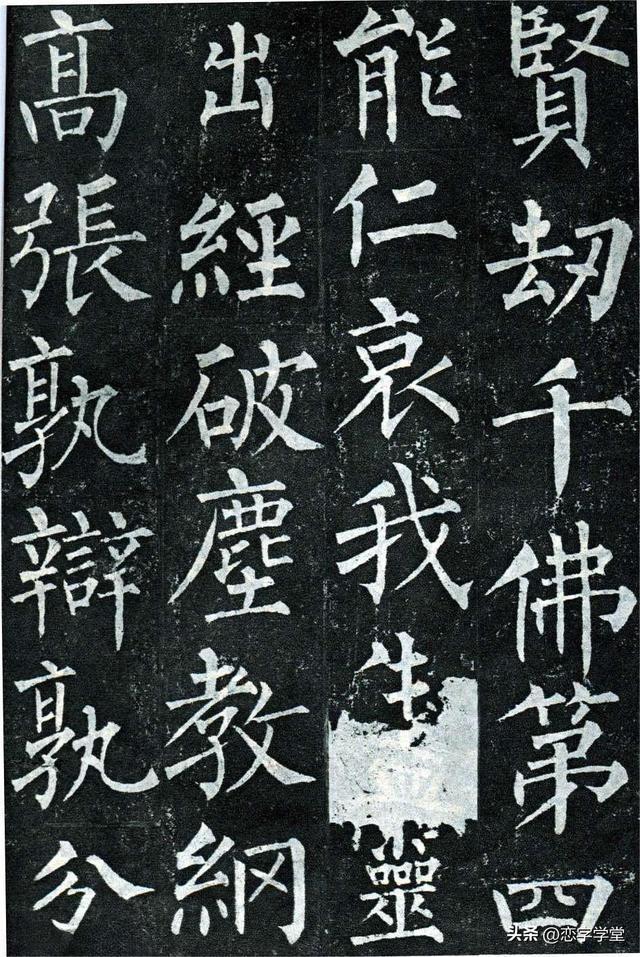 賢劫千佛第四
能仁哀我生靈
出經破塵教網
高張孰辯孰分
头条 @恋字学堂